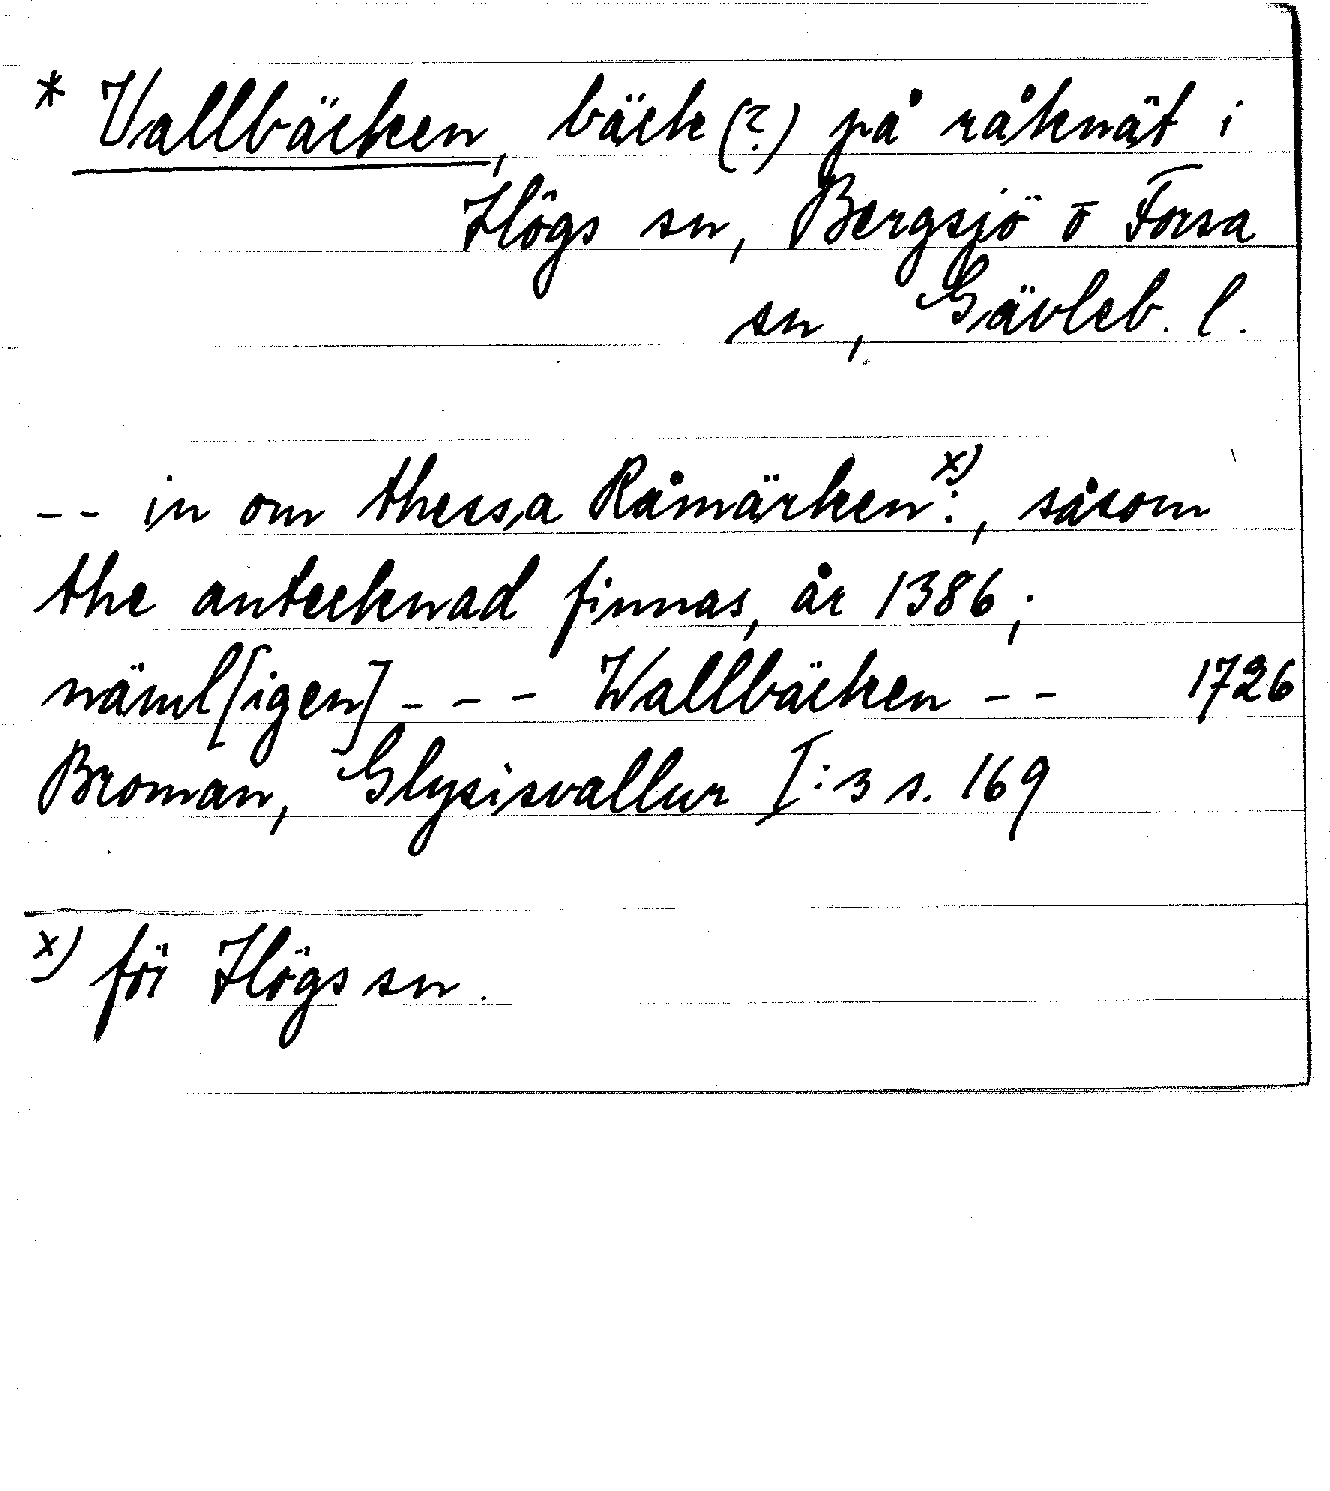 * Vallbäcken, bäck (?) på råknät i
Högs sn, Bergsjö o Forsa
sn, Gävleb. l.
-- in om thessa Råmärken x):, såsom
the antecknad finnas, år 1386;
näml[igen] - - - Wallbäcken - - 1726
Broman, Glysisvallur I:3 s. 169
x) för Högs sn.